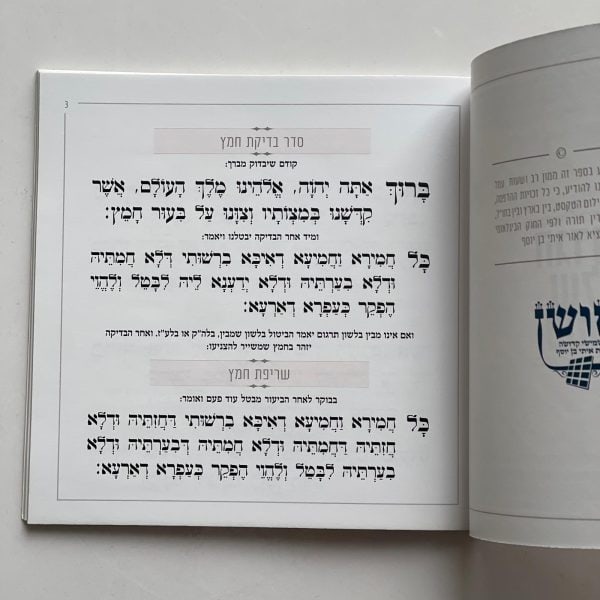 3
סדר בדיקת חמץ
קודם שיבדוק מברך:
בָּרוּךְ אַתָּה יְהֹוָה, אֱלֹהֵינוּ מֶלֶךְ הָעוֹלָם, אֲשֶׁר
קִדְּשָׁנוּ בְּמִצְוֹתָיו וְצִוָּנוּ עַל בִּעוּר חָמֵץ:
ומיד אחר הבדיקה יבטלנו ויאמר:
כָּל חֲמִירָא וַחֲמִיעָא דְּאִיכָּא בִרְשׁוּתִי דְּלָא חֲמִתֵּיהּ
וּדְלָא בִעַרְתֵּיהּ וּדְלָא יְדַעְנָא לֵיהּ לִבָּטֵל וְלֶהֱוֵי
הֶפְקֵר כְּעַפְרָא דְאַרְעָא:
ואם אינו מבין בלשון תרגום יאמר הביטול בלשון שמבין, בלה"ק או בלע"ז. ואחר הבדיקה
יזהר בחמץ שמשייר להצניעו:
שריפת חמץ
בבוקר לאחר הביעור מבטל עוד פעם ואומר:
כָּל חֲמִירָא וַחֲמִיעָא דְאִיכָּא בִרְשׁוּתִי דַּחֲזִתֵּיהּ וּדְלָא
חֲזִתֵּיהּ דַּחֲמִתֵּיהּ וּדְלָא חֲמִתֵּיהּ דְּבִעַרְתֵּיהּ וּדְלָא
בִעַרְתֵּיהּ לִבָּטֵל וְלֶהֱוֵי הֶפְקֵר כְּעַפְרָא דְאַרְעָא:
בספר זה ממון רב ושעות עמל
להודיע, כי כל זכויות ההדפסה,
הטקסט, בין בארץ ובין בחו"ל,
תורה ולפי החוק הבינלאומי
לאור איתי בן יוסף
קדושה
איתי בן יוסף